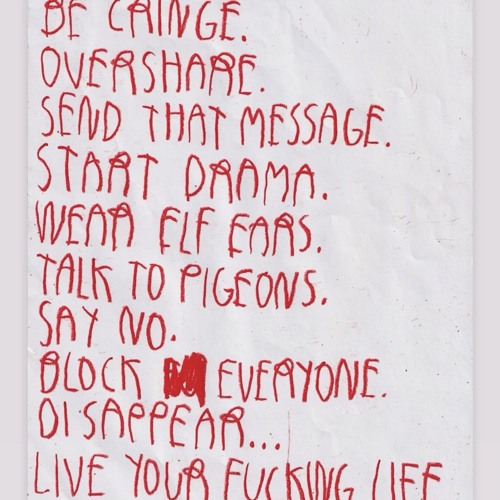 BE CRINGE.
OVERSHARE.
SEND THAT MESSAGE.
START DRAMA.
WEAR ELF EARS.
TALK TO PIGEONS.
SAY NO.
BLOCK EVERYONE.
DISAPPEAR...
LIVE YOUR FUCKING LIFE